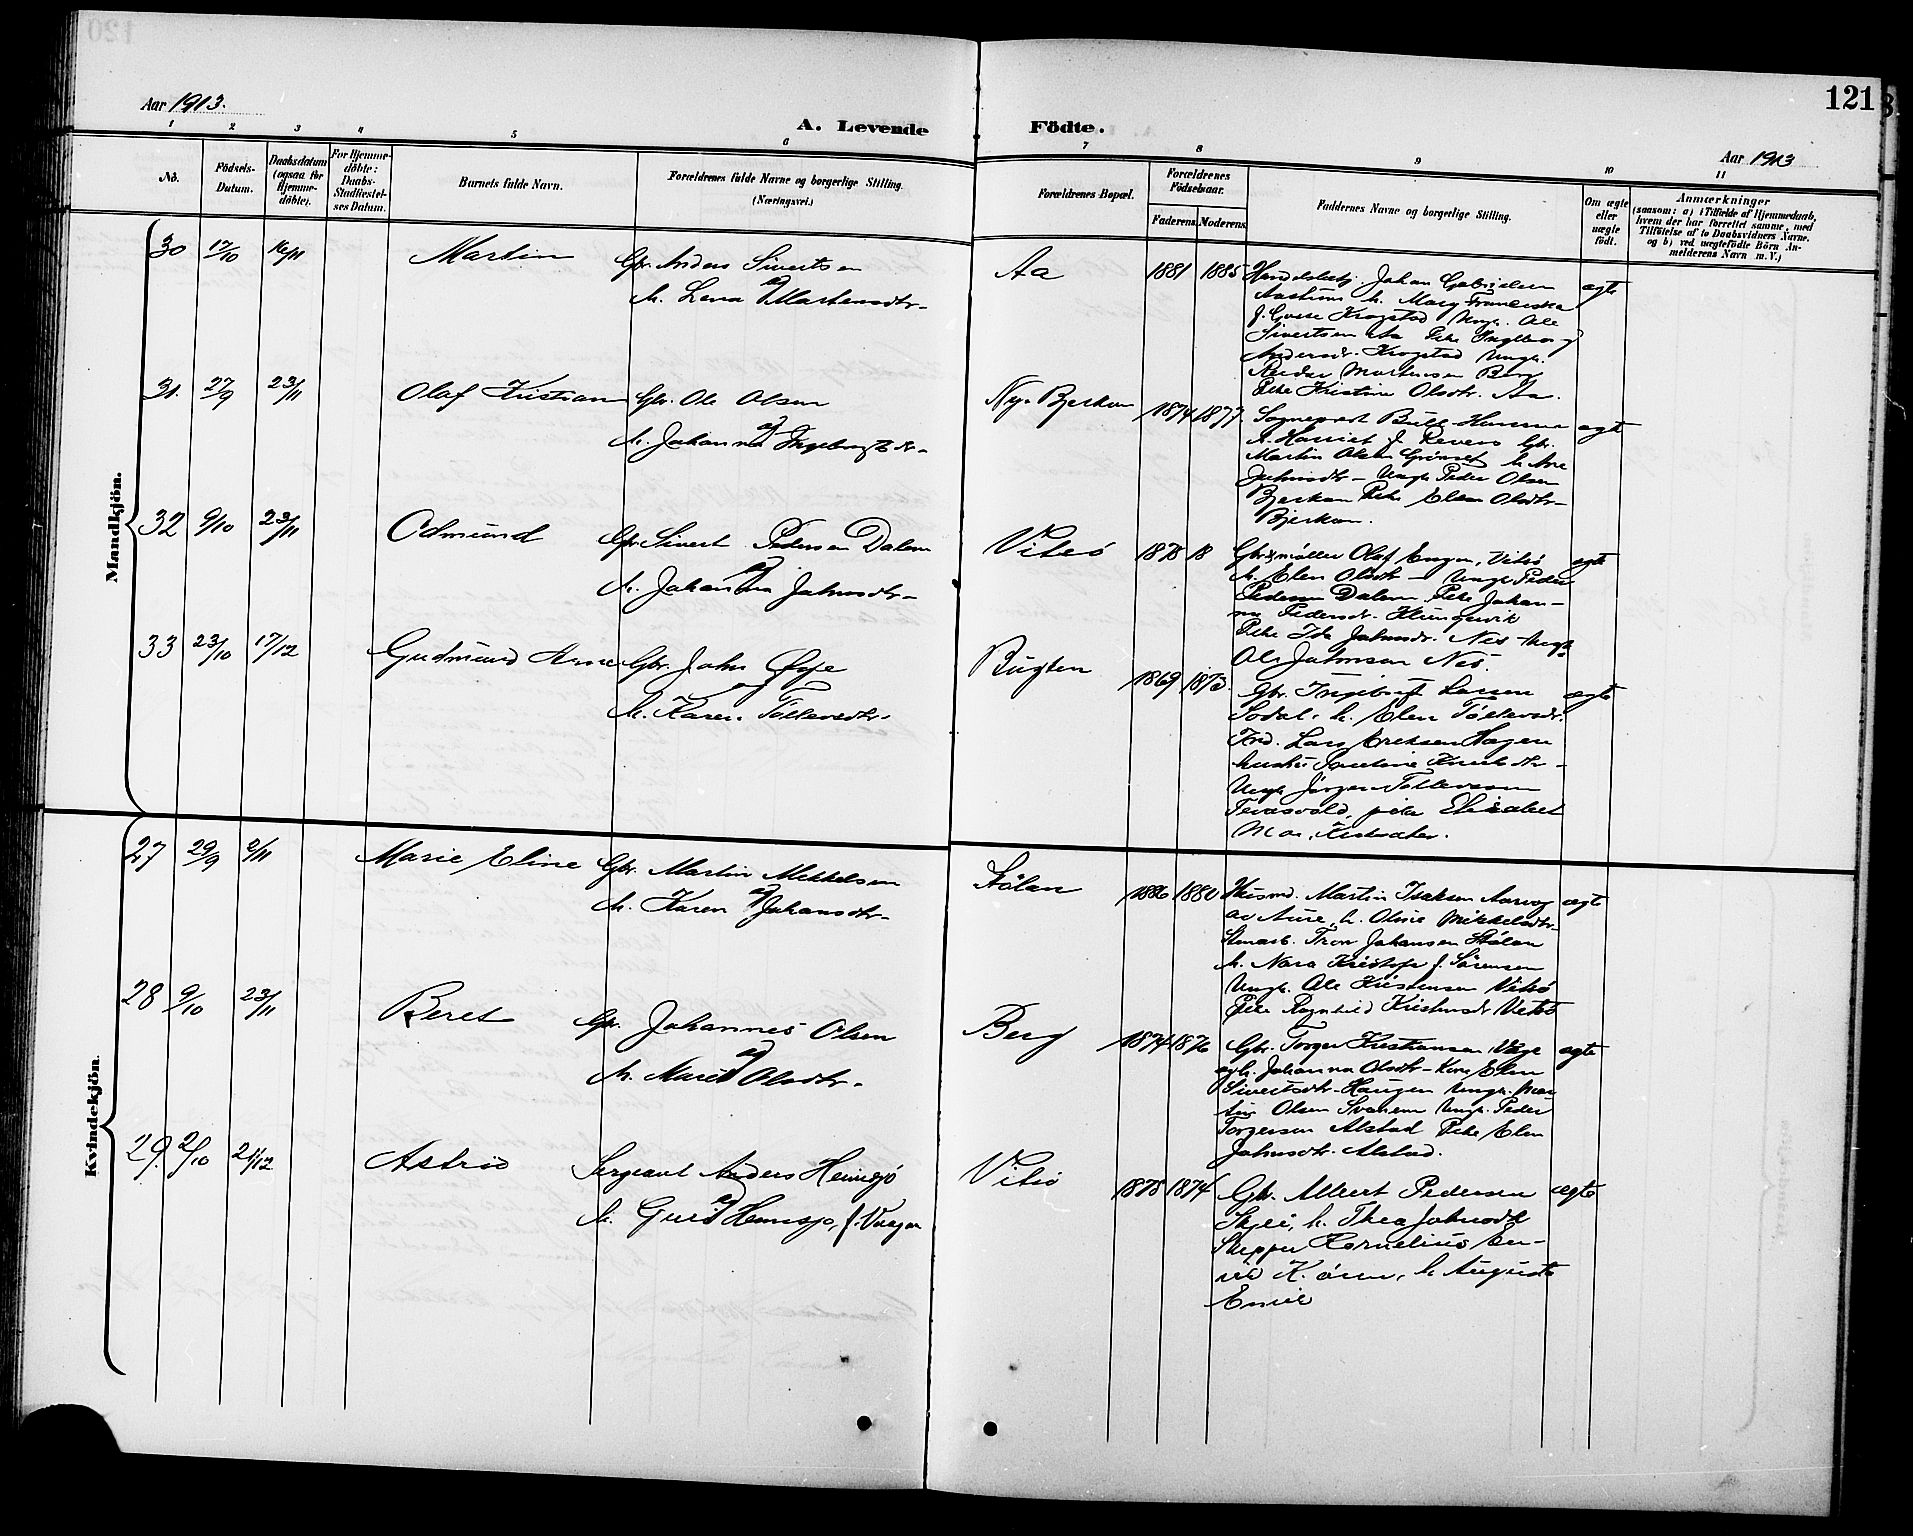 Aar 1913.
A. Levende Födte.
121
Aar 1913
1 2 3 4 5 6 7 8 9 10 11
No.
Födsels-Datum.
Daabsdatum (ogsaa for Hjemme-döbte).
For Hjemme-döbte: Daabs-Stadfæstel-ses Datum.
Barnets fulde Navn.
Forældrenes fulde Navne og borgerlige Stilling. (Næringsvei.)
Forældrenes Bopæl.
Forældrenes Födselsaar.
Faderens. Moderens.
Faddernes Navne og borgerlige Stilling.
Om ægte eller uægte födt.
Anmærkninger
(saasom: a) i Tilfælde af Hjemmedaab,
hvem der har forrettet samme, med
Tilföielse af to Daabsvidners Navne.
og b) ved uægtefödte Börn An-
melderens Navn m. V.)
Mandkjön.
30 17/10 16/11 Martin Gbr. Anders Sivertsen
og
h. Lena Martensdtr.
Aa 1881 1885 Johan Gabrielsen ægte
h. Mary Franciska
Krogstad Ungk. Ole
Sivertsen Aa Pike Ingeborg
Andersdr. Krogstad Ungk.
Peder Mortensen Berg
Pike Kristine Olsdtr. Aa.
31. 27/9 23/11 Olaf Kristian Gbr. Ole Olsen
og
h. Johanna Ingebrigtsdtr.
Ny-Bjerkan 1874 1877 Sogneprest Bull-Hansen ægte
h. Harriet f. Gbr.
Martin Olsen Grönset h. Ane
Johnsdtr. Ungk. Peder Olsen
Bjerkan Pike Elen Olsdtr.
Bjerkan.
32 9/10 23/11 Odmund Gbr. Sivert Pedersen Dalem
og
h. Johanna Johnsdtr.
Vitsö 1878 18 Gbr. & möller Olaf Engen, Vitsö ægte
h. Elen Olsdtr. Ungk. Peder
Pedersen Dalem Pike Johan-
na Pedersdr. Klungervik
Pike Ida Johnsdr. Nes Ungk.
Ole Johnsen Nes.
33 23/10 17/12 Gudmund Arne Gbr. John Öye
og
h. Karen Töllevsdtr.
Bugten 1869 1873. Gbr. Ingebrigt Larsen ægte
Sodal, h. Elen Töllevsdr.
Lars Eriksen Hagen
Ungk. Jörgen Tollevsen
pike Elisabet
Moe,
Kvindekjön
27 29/9 2/11 Marie Eline Gbr. Martin Mikkelsen
og
h. Karen Johansdtr.
Stölan 1886 1880 Husmd. Martin Isaksen Aarvog ægte
av Aure, h. Oline Mikkelsdtr.
Tron Johansen Stölan
h. Nora Kristofa f. Sörensen
Ungk. Ole Kristensen Vitsö
Pike Ragnhild Kristensdr Vitsö
28 9/10 23/11 Beret Gbr. Johannes Olsen
og
h. Marit Olsdtr.
Berg 1874 1876 Gbr. Torger Kristiansen, ægte
og h. Johanna Olsdtr. Elen
Sivertsdtr. Haugen Ungk. Mar-
tin Olsen Svanem Ungk. Peder
Torgersen Alstad Pike Elen
Johnsdtr. Alstad.
29. 2/10 21/12 Astrid Sergeant Anders Hemsjö
og
h. Guri Hemsjö, f.
Vitsö 1878 1874 Gbr. Albert Pedersen ægte
Skjei, h. Thea Johnsdtr
Skipper Kornelius
h. Augusta
Emilie